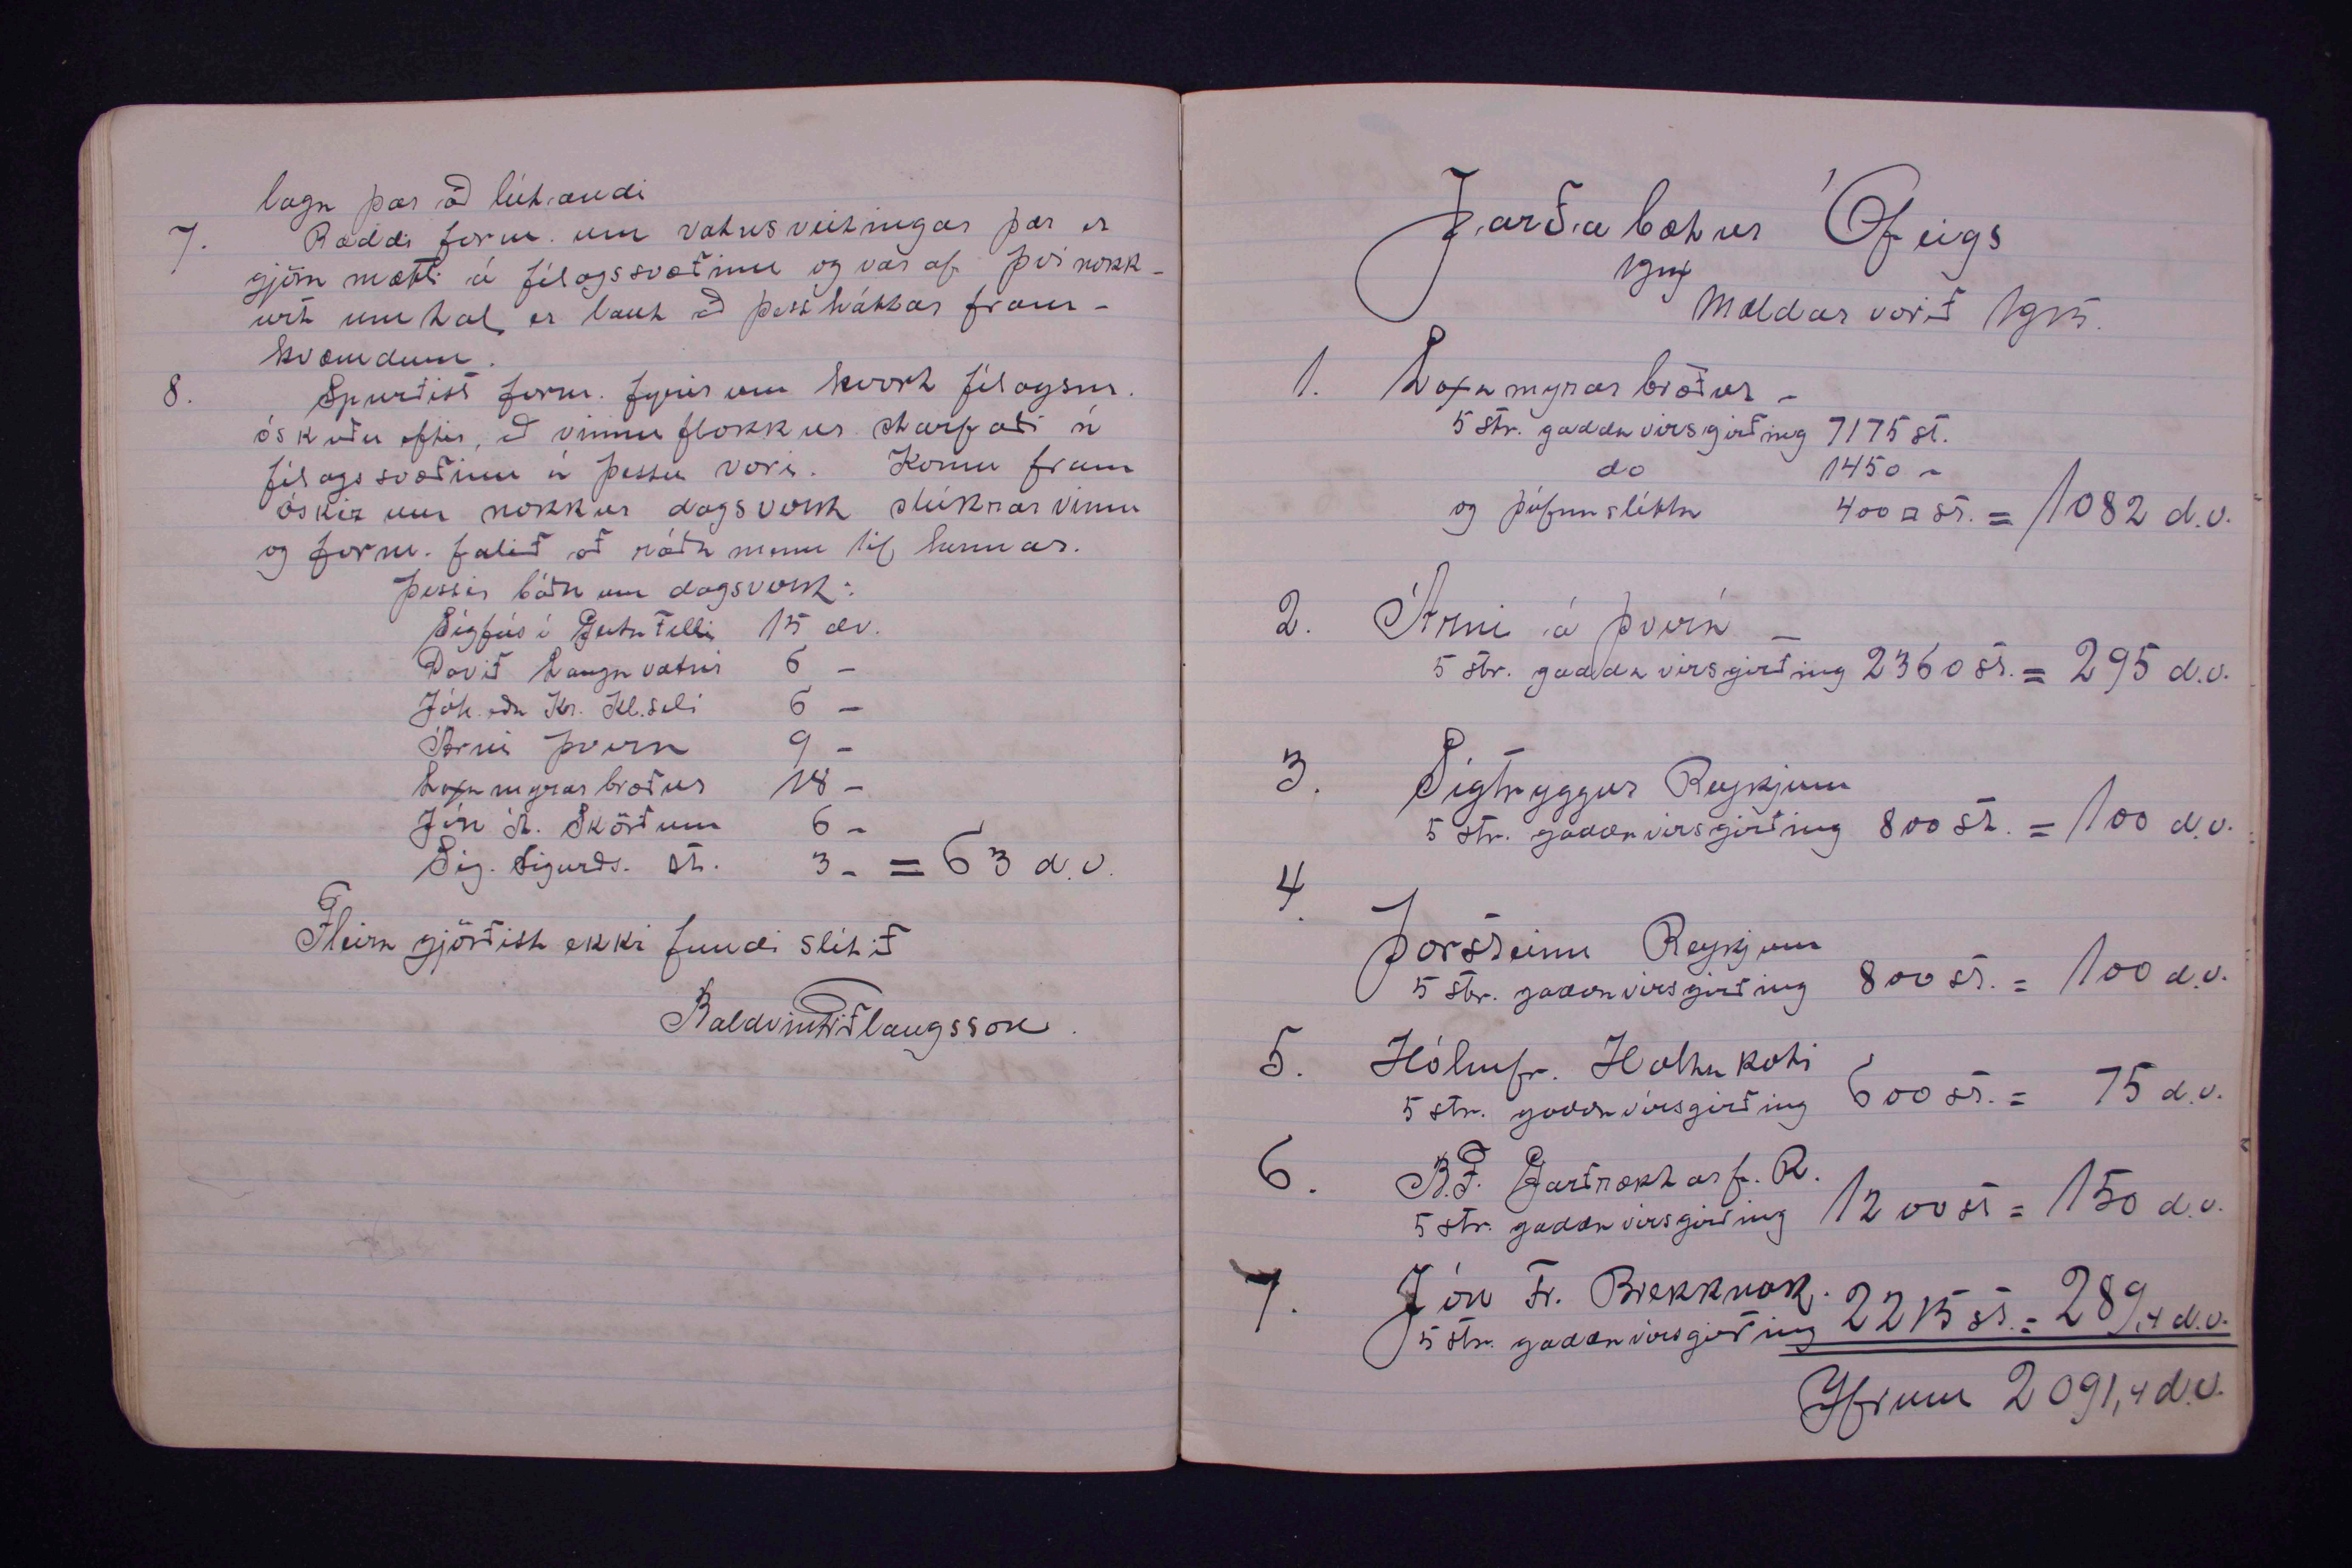 lagn þar að lútandi
7. Ræddi form. um vatnsveitingar þar er
gjöra mætti á félagssvæðinu og var af því nokk-
urt umtal er laut að þessháttar fram-
kvæmdum.
8. Spurðist form. fyrir um hvort félagsm.
óskuðu eftir, að vinnuflokkur starfaði á
félagssvæðinu á þessu vori. Komu fram
óskir um nokkur dagsverk slíkrar vinnu
og form. falið að ráða menn til hennar.
Þessir báðu um dagsverk:
Sigfús í Geitafelli 15 dv.
Davíð Langavatni 6 -
Jóh. eða Kr. Kl.seli 6 -
Árni Þverá 9 -
Laxamýrarbræður 18 -
Jón Á. Skörðum 6 -
Sig. Sigurðs. St. 3 - = 63 d.v.
Fleira gjörðist ekki fundi slitið
Baldvin Friðlaugsson.
Jarðabætur Ófeigs
1914
Mældar vorið 1915.
1. Laxamýrarbræður -
5 str. gaddavírsgirðing 7175 st.
do 1450 -
og þúfnaslétta 400 □ st. = 1082 d.v.
2. Árni á Þverá -
5 str. gaddavírsgirðing 2360 st. = 295 d.v.
3. Sigtryggur Reykjum
5 str. gaddavírsgirðing 800 st. = 100 d.v.
4. Þorsteinn Reykjum
5 str. gaddavírsgirðing 800 st. = 100 d.v.
5. Hólmfr. Holtakoti
5 str. gaddavírsgirðing 600 st. = 75 d.v.
6. B.F. Garðræktarf. R.
5 str. gaddavírsgirðing 1200 st = 150 d.v.
7. Jón Fr. Brekknak.
5 str. gaddavírsgirðing 2215 st. = 289,4 d.v.
Yfirum 2091,4 d.v.